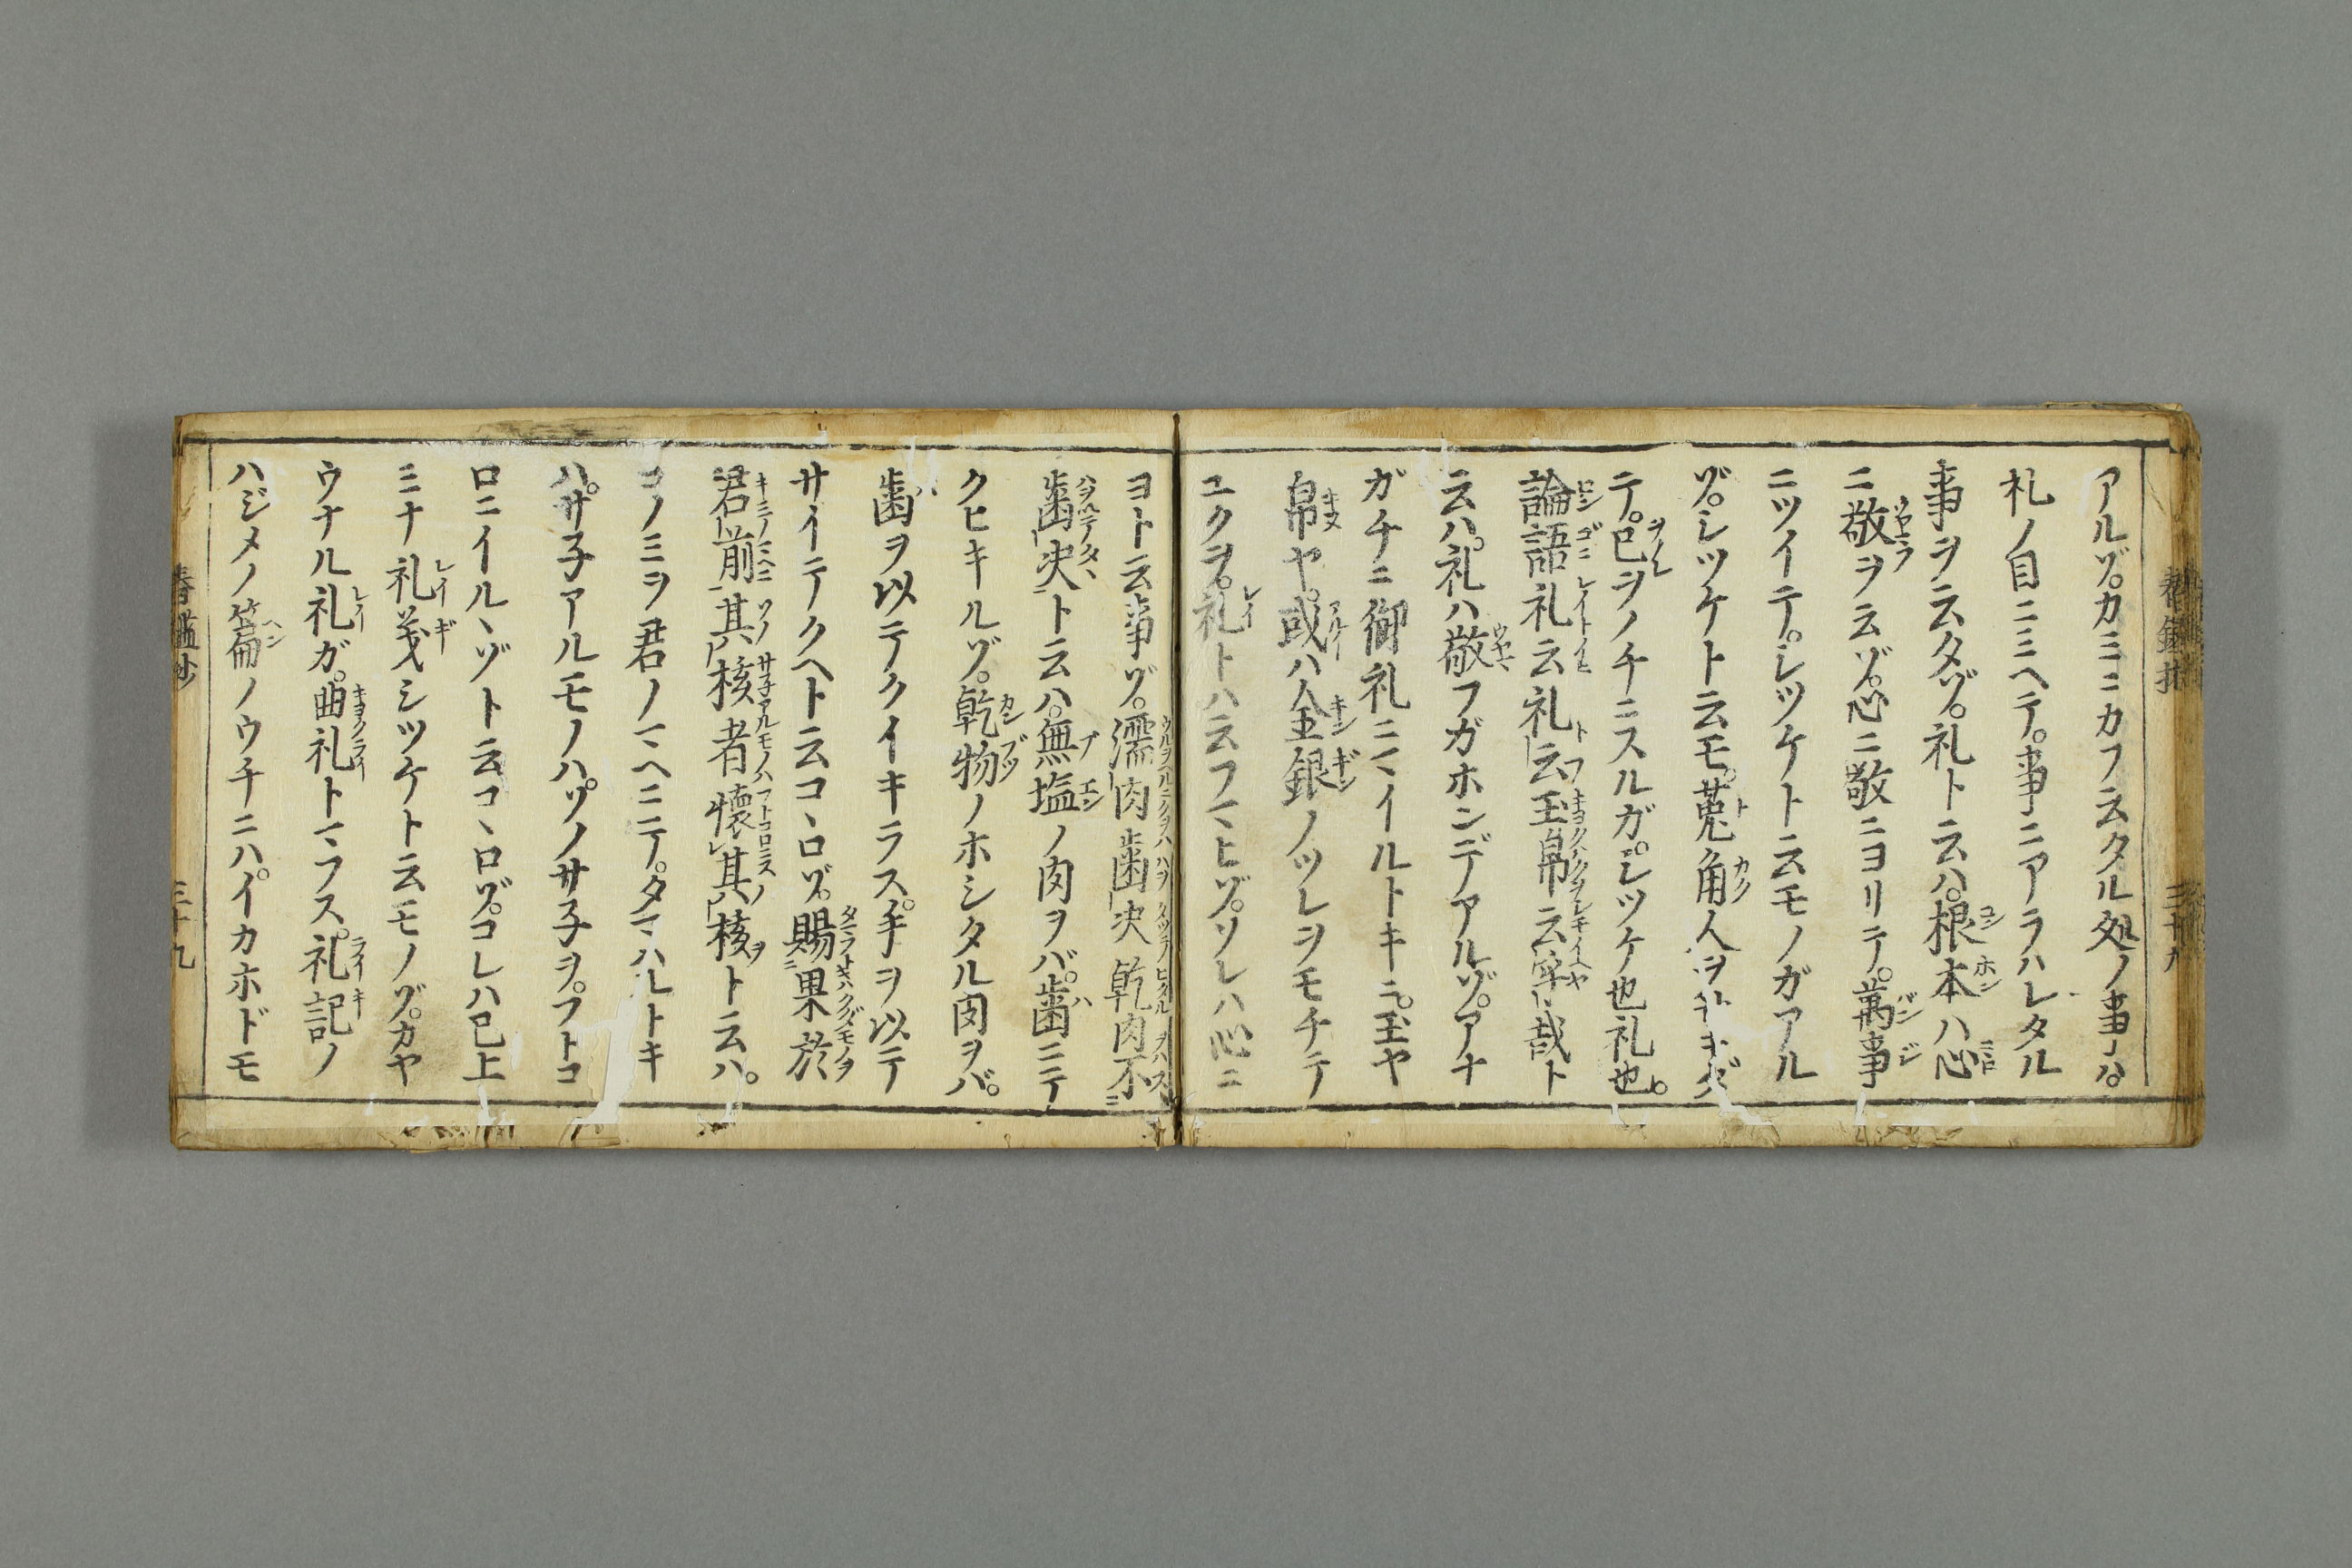 アルゾ。カミニカフ云タル処ノ事ハ。
礼ノ目ニミヘテ。事ニアラハレタル
事ヲ云タゾ。礼ト云ハ。根本ハ心
ニ敬ヲ云ゾ。心ニ敬ニヨリテ。萬事
ニツイテ。シツケト云モノガアル
ゾ。シツケト云モ。菟角人ヲ
テ。已ヲノチニスルガ。シツケ也礼也。
論語礼云礼云玉帛云乎哉ト
云ハ。礼ハ敬フガホンデアルゾ。アナ
ガチニ御礼ニマイルトキニ。玉ヤ
帛ヤ。或ハ金銀ノツレヲモチテ
ユクヲ。礼トハ云フマヒゾ。ソレハ心ニ
ヨト云事ゾ。濡肉歯决乾肉不
歯决ト云ハ。無塩ノ肉ヲバ。歯ニテ
クヒキルゾ。乾物ノホシタル肉ヲバ。
歯ヲ以テクイキラス。手ヲ以テ
サイテクヘト云コヽロゾ。賜果於
君前其核者懐其核ト云ハ。
コノミヲ君ノマヘニテ。タマハルトキ
ハ。サ子アルモノハ。ソノサ子ヲ。フトコ
ロニイルヽゾト云コヽロゾ。コレハ已上
ミナ礼義シツケト云モノゾ。カヤ
ウナル礼ガ。曲礼トマフス。礼記ノ
ハジメノ篇ノウチニハ。イカホドモ
三十九